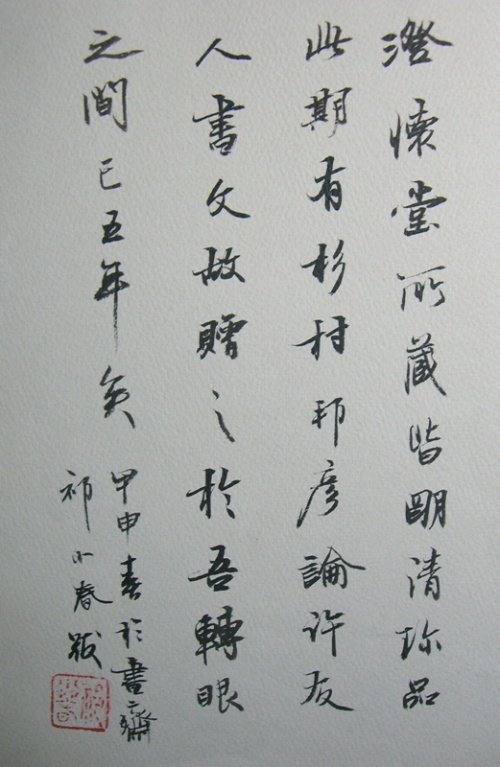 澄懐堂所藏皆明清珎品
此期有杉村邦彦論许友
人書文故贈之於吾轉眼
之間已五年矣
甲申春於書齋
祁小春跋